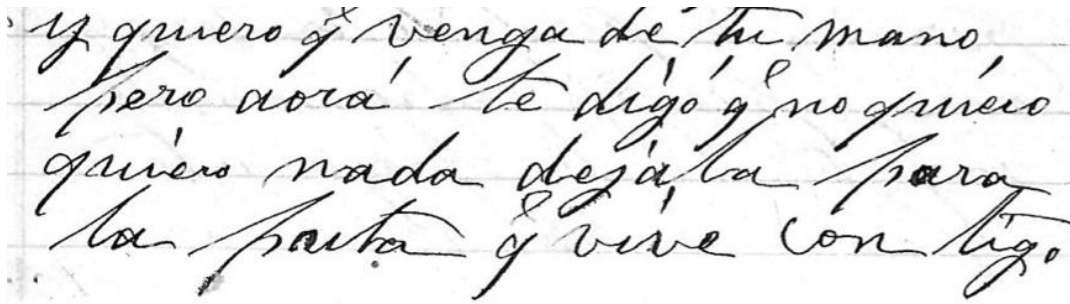 y quiero q̃ venga de tu mano
pero aora te digo q̃ no quiero
quiero nada dejala para
la puta q̃ vive con tigo